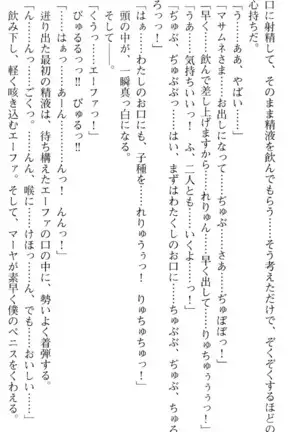 口に射精して、そのまま精液を飲んでもらう……そう考えただけで、ぞくぞくするほどの
心持ちだ。
「う……ああ、やばい……」
「マサムネさま……お出しになって……ぢゅぷ……さあ……ぢゅぽぽっ！」
「早く……飲んで差し上げますから……れりゅん……早く出して……りゅちゅぅぅっ！」
「うああ……気持ちいいっ！　ふ、二人とも……いくよ……っ！」
「ぢゅぷ、ぢゅぷぷっ……はい、まずはわたくしのお口に……ぢゅぷぷ、ぢゅぷ、ぢゅる
ろっっ！」
「はぁっ……わたしのお口にも、子種を……れりゅぅぅっ！　りゅちゅちゅっ！」
頭の中が、一瞬真っ白になる。
そして――。
「くうっ……エーファっ！」
びゅるるっっ!!　びゅるっ!!
「……はぁっ……あーん……んんっ……んっ！　んんっ！」
迸り出た最初の精液は、待ち構えたエーファの口の中に、勢いよく着弾する。
「ん……んっ……ごくっ。んんっ、喉に……けほっ……ん、でも……おいしい……」
飲み下し、軽く咳き込むエーファ。そして、マーヤが素早く僕のペニスをくわえる。